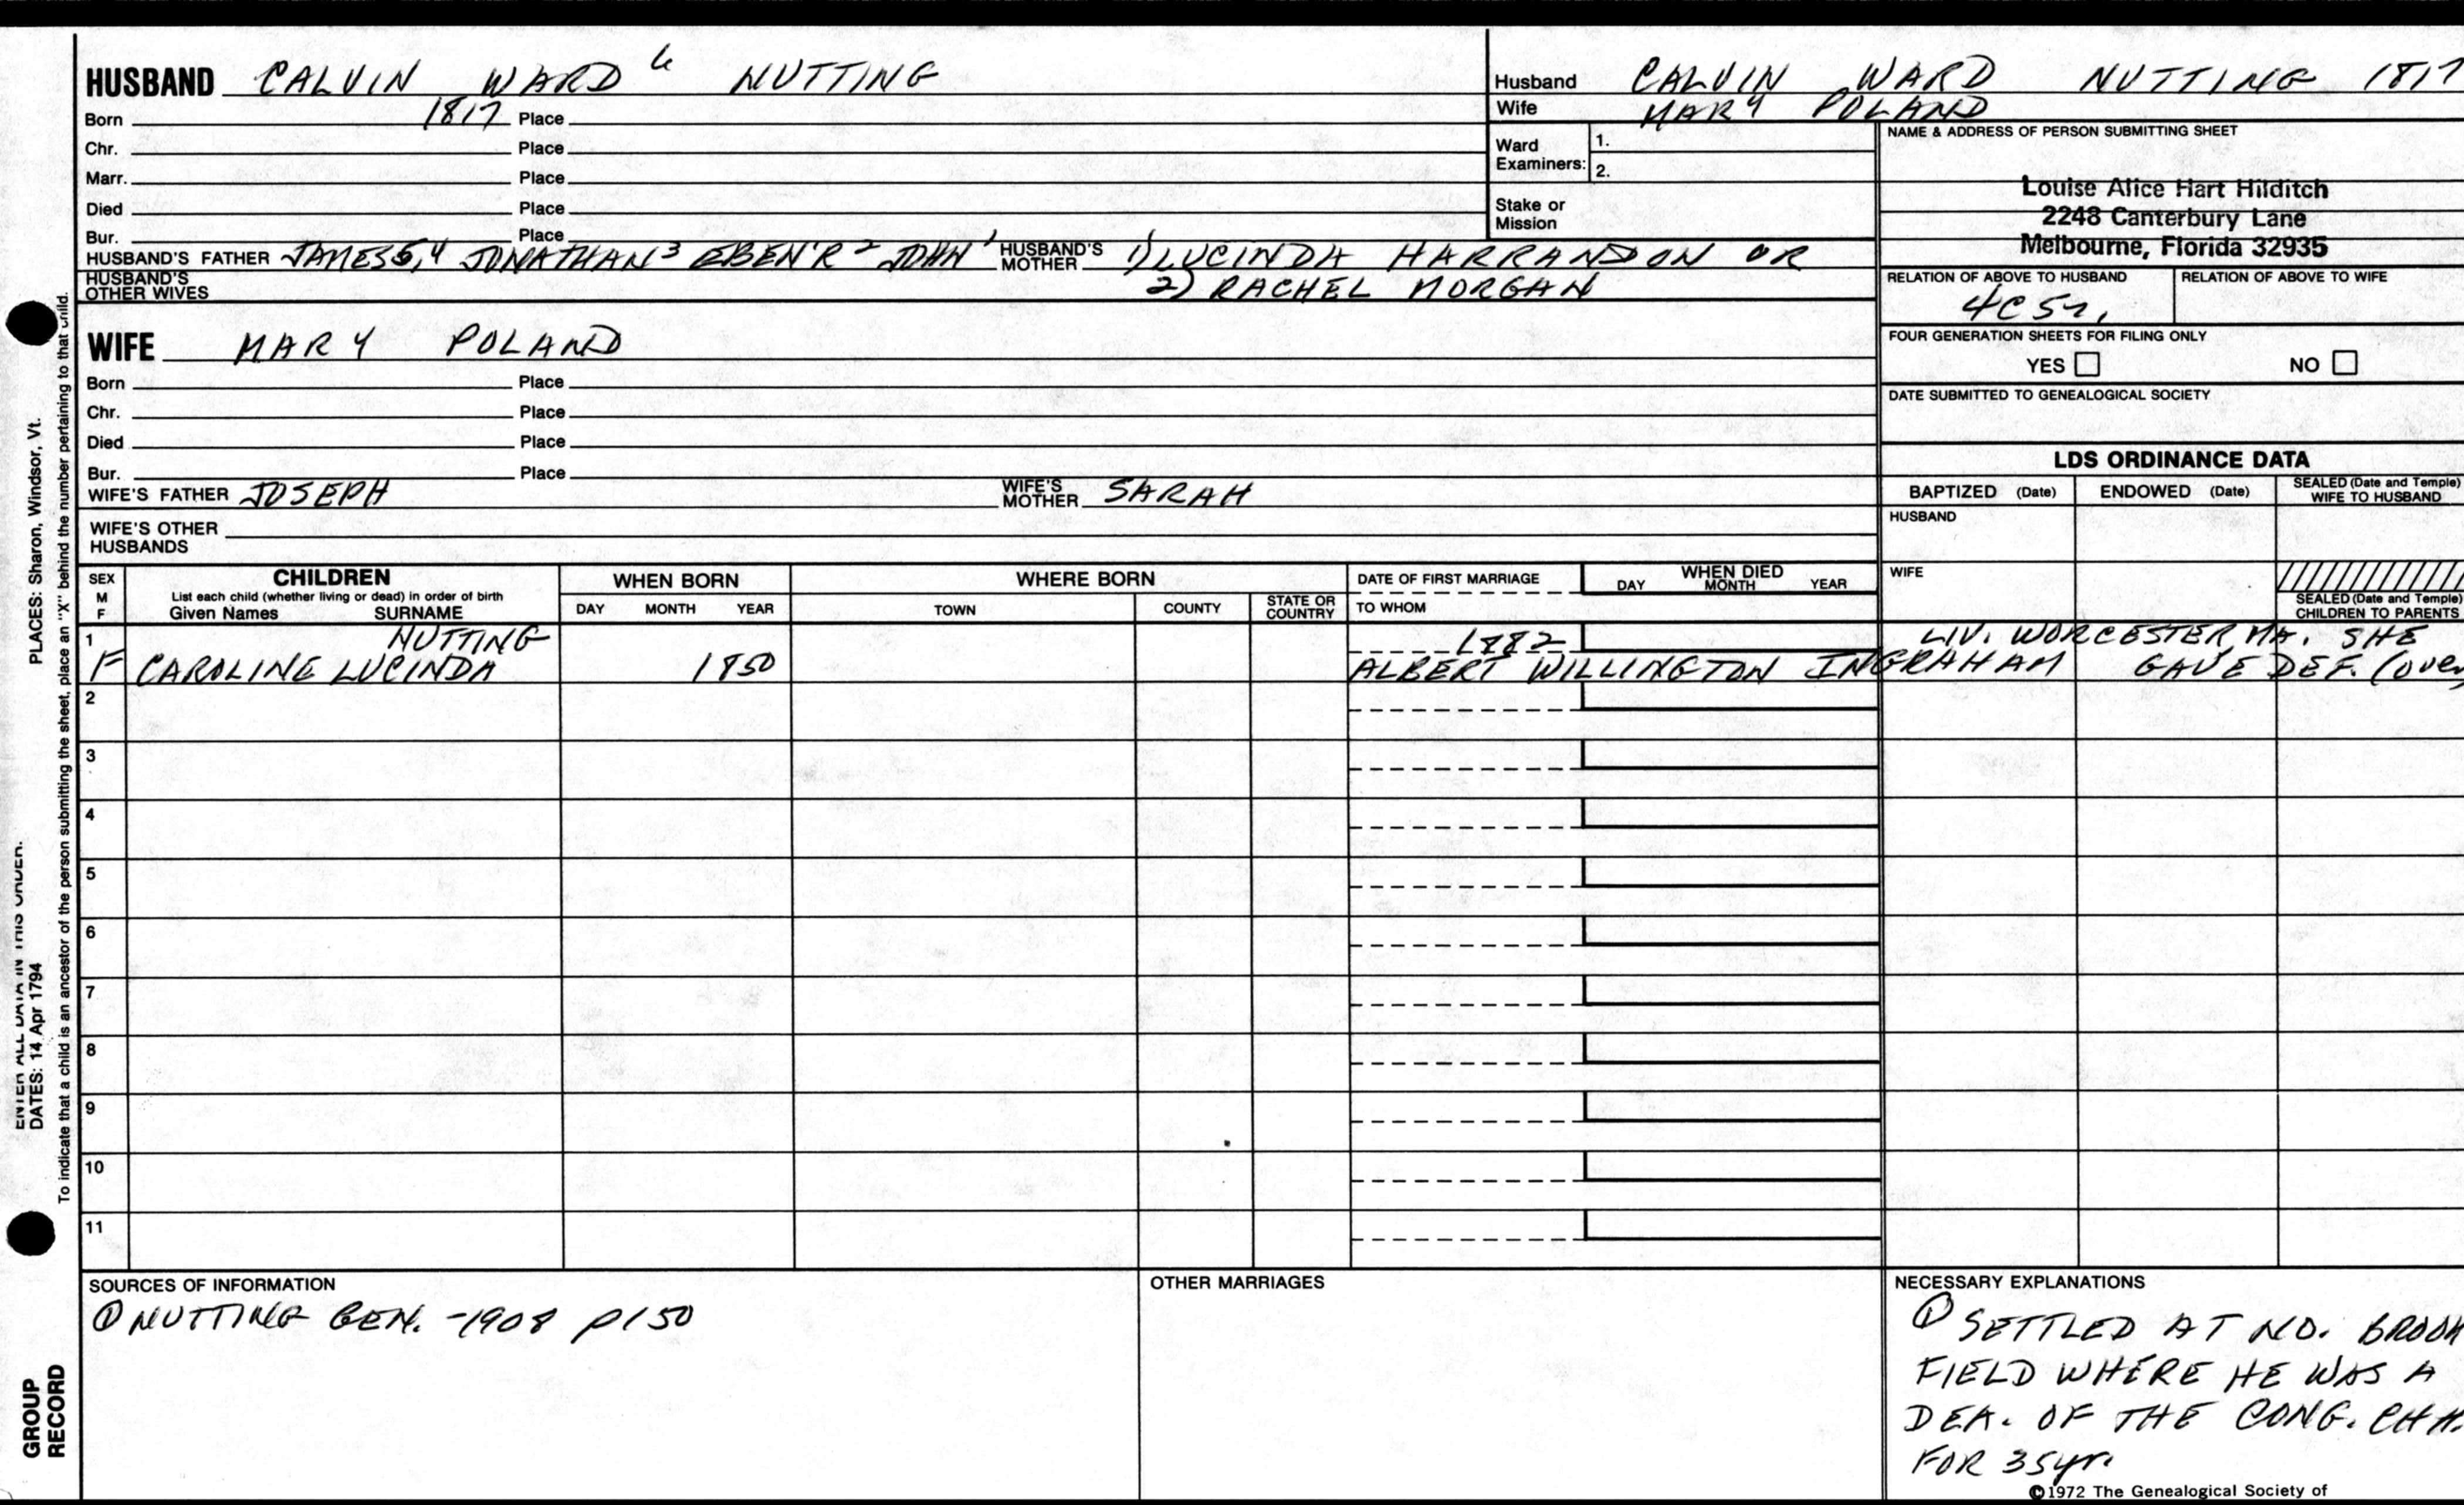 HUSBAND CALVIN WARD 6 NUTTING
Born 1817 Place
Chr. Place
Marr. Place
Died Place
Bur. Place
HUSBAND'S FATHER JAMES 5,4 JONATHAN 3 EBEN'R 2 JOHN 1 HUSBAND'S MOTHER 1) LUCINDA HARRANDON OR
HUSBAND'S OTHER WIVES 2) RACHEL MORGAN
WIFE MARY POLAND
Born Place
Chr. Place
Died Place
Bur. Place
WIFE'S FATHER JOSEPH WIFE'S MOTHER SARAH
WIFE'S OTHER HUSBANDS
Husband CALVIN WARD NUTTING 1817
Wife MARY POLAND
Ward Examiners: 1.
2.
Stake or Mission
NAME & ADDRESS OF PERSON SUBMITTING SHEET
Louise Alice Hart Hilditch
2248 Canterbury Lane
Melbourne, Florida 32935
RELATION OF ABOVE TO HUSBAND RELATION OF ABOVE TO WIFE
FOUR GENERATION SHEETS FOR FILING ONLY
YES NO
DATE SUBMITTED TO GENEALOGICAL SOCIETY
LDS ORDINANCE DATA
BAPTIZED (Date) ENDOWED (Date) SEALED (Date and Temple) WIFE TO HUSBAND
HUSBAND
WIFE
SEALED (Date and Temple) CHILDREN TO PARENTS
SEX M F CHILDREN WHEN BORN WHERE BORN DATE OF FIRST MARRIAGE WHEN DIED
List each child (whether living or dead) in order of birth
Given Names SURNAME DAY MONTH YEAR TOWN COUNTY STATE OR COUNTRY TO WHOM DAY MONTH YEAR
1 NUTTING 1882 LIV. WORCESTER, MA. SHE
F CAROLINE LUCINDA 1850 ALBERT WILLINGTON INGRAHAM GAVE DEF. (over
2
3
4
5
6
7
8
9
10
11
SOURCES OF INFORMATION
① NUTTING GEN. -1908 p150
OTHER MARRIAGES
NECESSARY EXPLANATIONS
① SETTLED AT NO. BROOK
FIELD WHERE HE WAS A
DEA. OF THE CONG. CHH.
FOR 35yr.
©1972 The Genealogical Society of
PLACES: Sharon, Windsor, Vt.
ENTER ALL DATA IN THIS ORDER.
DATES: 14 Apr 1794
To indicate that a child is an ancestor of the person submitting the sheet, place an "X" behind the number pertaining to that child.
GROUP
RECORD